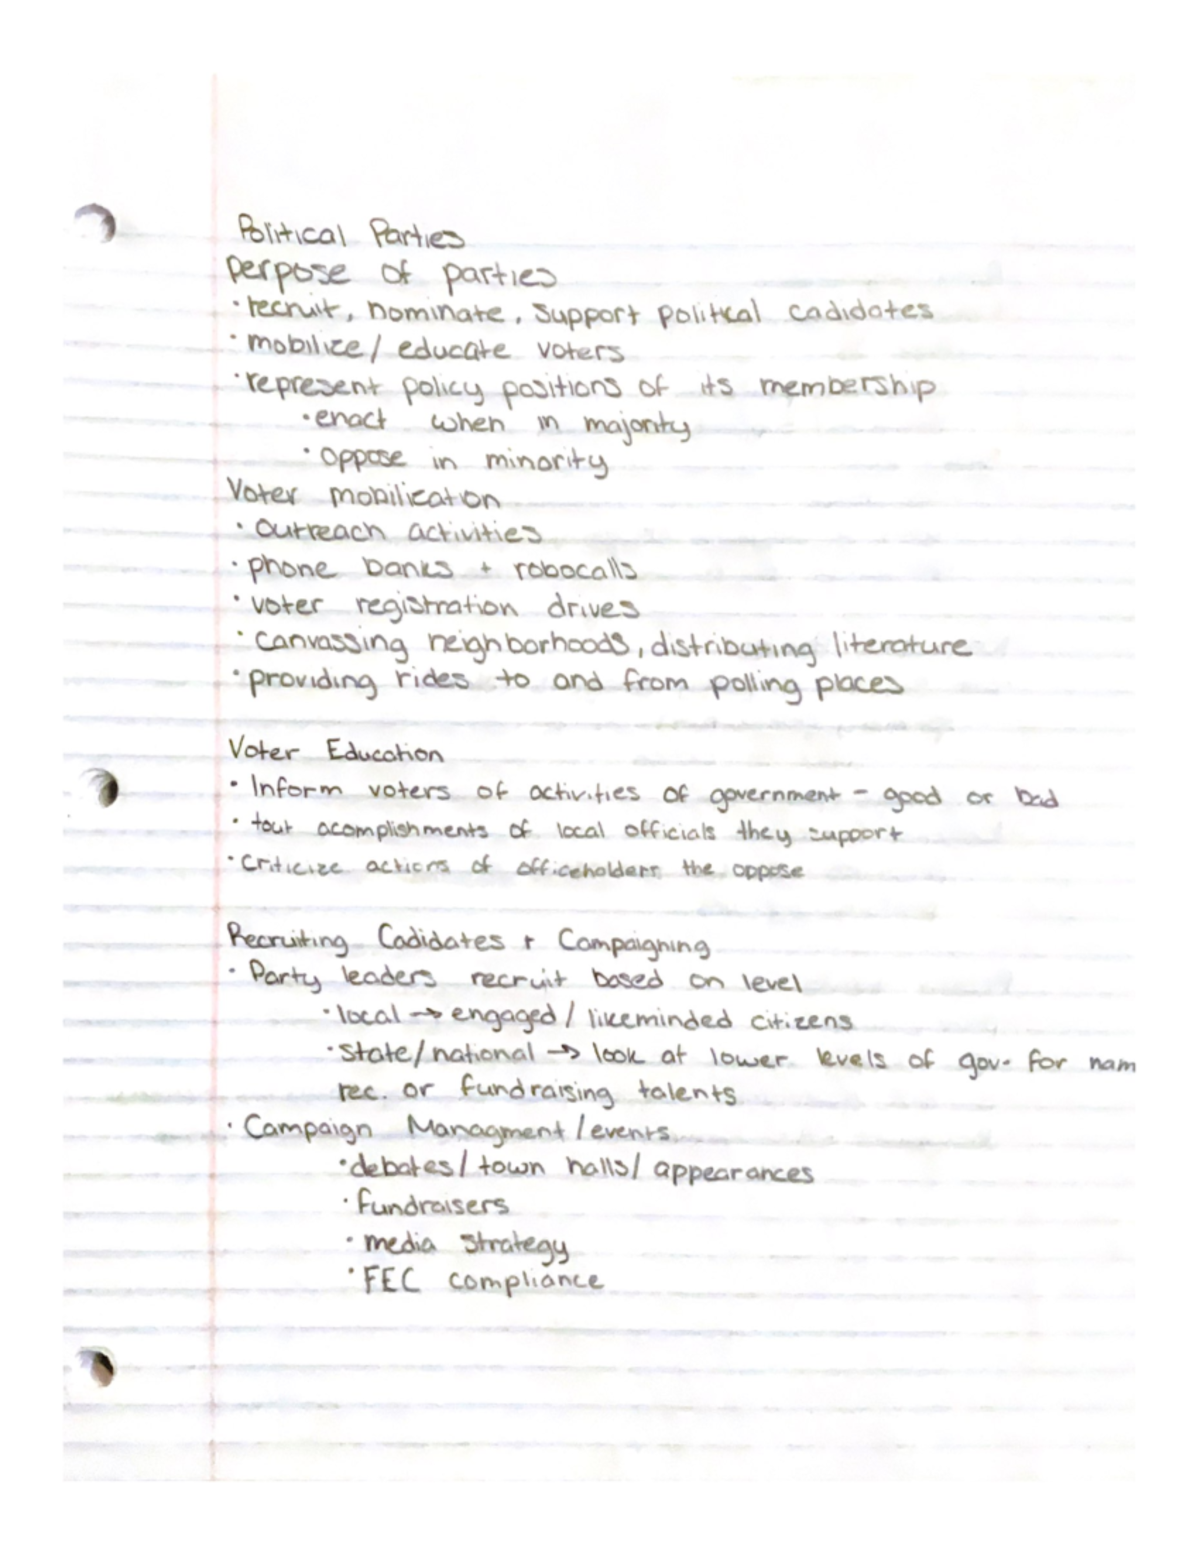 Political Parties
perpose of parties
· recruit, nominate, support political cadidates
· mobilize / educate voters
· represent policy positions of its membership
· enact when in majority
· oppose in minority
Voter mobilization
· Outreach activities
· phone banks + robocalls
· voter registration drives
· canvassing neighborhoods, distributing literature
· providing rides to and from polling places
Voter Education
· Inform voters of activities of government - good or bad
· tout acomplishments of local officials they support
· Criticize actions of officeholders the oppose
Recruiting Cadidates + Campaigning
· Party leaders recruit based on level
· local → engaged / likeminded citizens
· State/national → look at lower levels of gov. for nam
rec. or fundraising talents
· Campaign Managment / events
· debates / town halls / appearances
· fundraisers
· media strategy
· FEC compliance